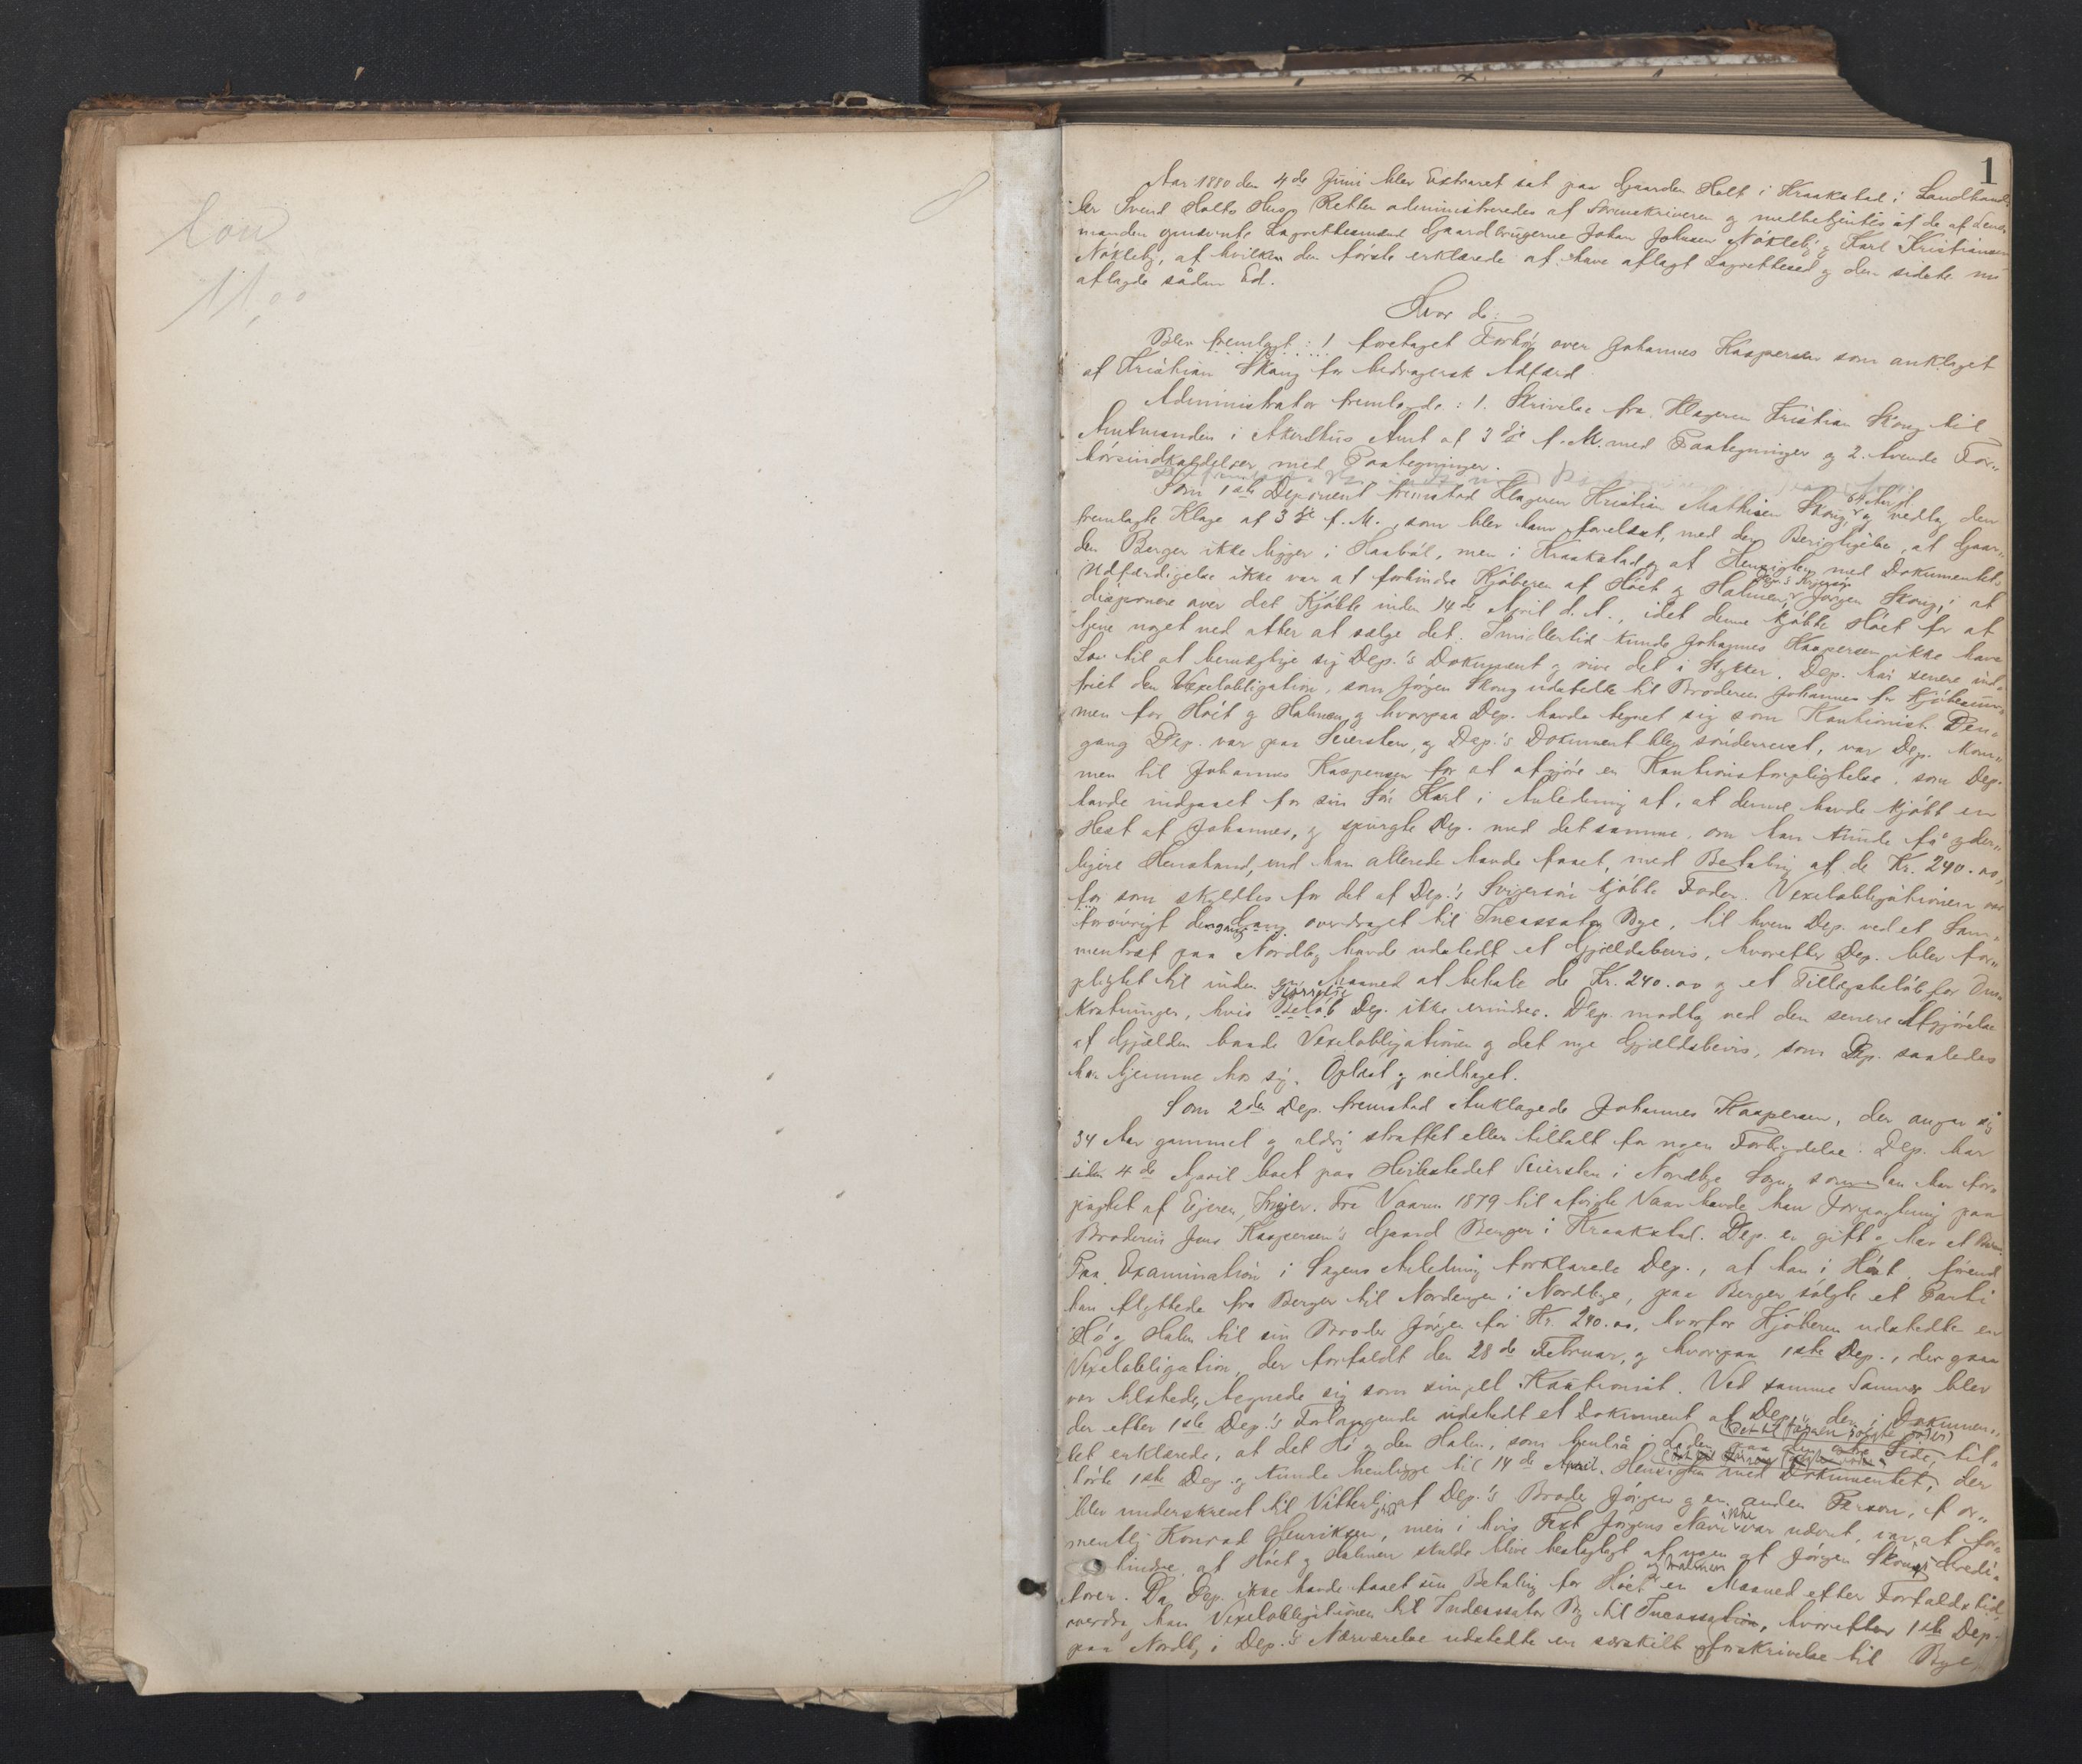 1
Aar 1880 den 4de Juni blev Extraret sat paa Gaarden Holt i Kraakstad i Landhand-
ler Svend Holts Hus. Retten administreredes af Sorenskriveren og medbetjentes af de af Lens-
manden opnævnte Lagrettesmænd Gaardbrugerne Johan Johnsen Nökleby og Karl Kristiansen
Nökleby, af hvilken den förste erklærede at have aflagt Lagrettesed og den sidste nu
aflagde sådan Ed.
Hvor da:
Blev fremlagt: ! foretaget Forhör over Johannes Kaspersen som anklaget
af Kristian Skoug for bedragersk Adfærd.
Administrator fremlagde: 1. Skrivelse fra Klageren Kristian Skoug til
Amtmanden i Akershus Amt af 3die f. M. med Paategninger og 2. hvende For„
hörsindkaldelser med Paategninger.
Som 1ste Deponent fremstod Klageren Kristian Mathisen Skoug, og vedtog den
fremlagte Klage af 3die f. M., som blev ham forelæst, med den Berigtigelse, at Gaar„
den Berger ikke ligger i Haaböl, men i Kraakstad, og at Hensigten med Dokumentets
Udfærdigelse ikke var at forhindre Kjöberen af Höet og Halmen, Dep.'s Svigersön Jörgen Skoug, i at
disponere over det Kjöbte inden 14de April d. A., idet denne kjöbte Höet for at
tjene noget ved atter at sælge det. Imidlertid kunde Johannes Kaspersen ikke have
Lov til at bemægtige sig Dep.'s Dokument og rive det i Stykker. Dep. har senere ind„
friet den Vexelobligation, som Jörgen Skoug udstedte til Broderen Johannes for Kjöbesum„
men for Höet og Halmen, og hvorpaa Dep. havde tegnet sig som Kautionist. Den„
gang Dep. var paa Seiersten, og Dep.'s Dokument blev sönderrevet, var Dep. kom„
men til Johannes Kaspersen for at afgjöre en Kautionsforpligtelse, som Dep.
havde indgaaet for sin Sön Karl i Anledning af, at denne havde kjöbt en
Hest af Johannes, og spurgte Dep. med det samme, om han kunde få yder„
ligere Henstand, end han allerede havde faaet, med Betaling af de Kr. 240.00,
for som skyldtes for det af Dep.'s Svigersön kjöbte Foder. Vexelobligationen var
forövrigt dengang overdraget til Incassator Bye, til hvem Dep. ved et Sam„
mentræf paa Nordby havde udstedt et Gjældsbevis, hvorefter Dep. blev for„
pligtet til inden en Maaned at betale de Kr. 240.00 og et Tillægsbelöb for Om„
kostninger, hvis Störrelse Dep. ikke erindrer. Dep. modtog ved den senere Afgjörelse
af Gjælden baade Vexelobligationen og det nye Gjældsbevis, som Dep. saaledes
har hjemme hos sig. Oplæst og vedtaget.
Som 2den Dep. fremstod Anklagede Johannes Kaspersen, der angav sig
34 Aar gammel og aldrig straffet eller tiltalt for nogen Forbrydelse. Dep. har
siden 4de April boet paa Hvilestedet Seiersten i Nordbye Sogn, som han har for„
pagtet af Eieren. Fra Vaaren 1879 til afvigte Vaar havde han Forpagtning paa
Broderen Jens Kaspersen's Gaard Berger i Kraakstad. Dep. er gift og har et Barn.
Paa Examination i Sagens Anledning forklarede Dep., at han i Höst, förend
han flyttede fra Berger til Nordengen i Nordbye, paa Berger solgte et Parti
Hö og Halm til sin Broder Jörgen for Kr. 240.00, hvorfor Kjöberen udstedte en
Vexelobligation, der forfaldt den 28de Februar, og hvorpaa 1ste Dep., der
var tilstede, tegnede sig som simpel Kautionist. Ved samme blev
der efter 1ste Dep.'s Forlangende udstedt et Dokument af Dep., der i Dokumen„
tet erklærede, at det Hö og den Halm, som henlå i Laden, til„
hörte 1ste Dep. og kunde henligge til 14de April. Hensigten med Dokumentet, der
blev underskrevet til Vitterlighed af Dep.'s Broder Jörgen og en anden Person,
mentlig Konrad Henriksen, men i hvis Text Jörgens Navn ikke var nævnt, var, at for„
hindre, at Höet og Halmen skulde blive beslaglagt af nogen af Jörgen Skoug's Kredi„
torer. Da Dep. ikke havde faaet sin Betaling for Höet og Halmen en Maaned efter Forfaldstid,
overdrog han Vexelobligationen til Indcassator Bye til Incassation, hvorefter 1ste Dep.
paa Nordby i Dep.'s Nærværelse udstedte en særskilt Forskrivelse til Bye